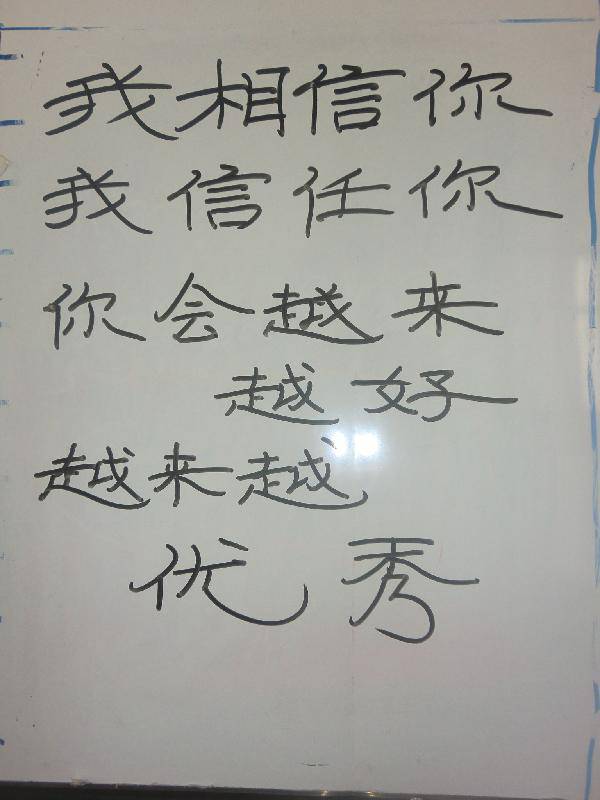 我相信你
我信任你
你会越来
越好
越来越
优秀